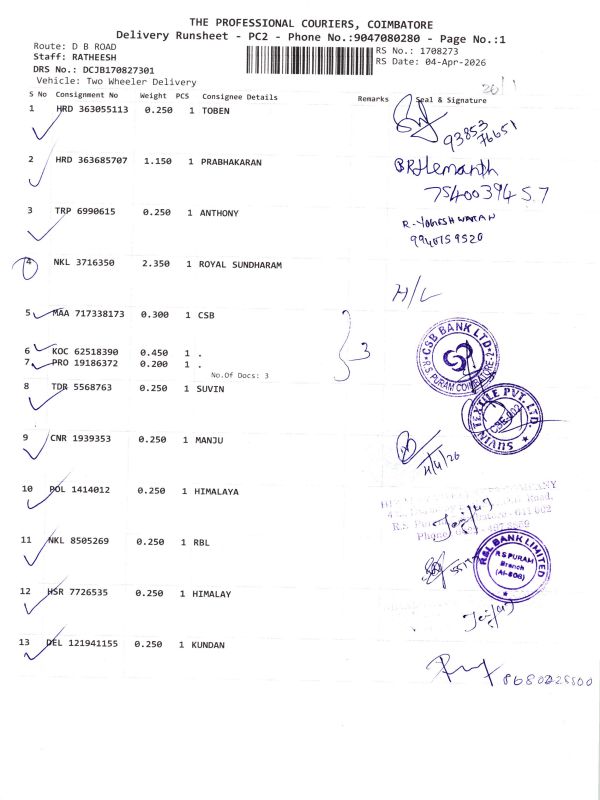 THE PROFESSIONAL COURIERS, COIMBATORE
Delivery Runsheet - PC2 - Phone No.:9047080280 - Page No.:1
Route: D B ROAD
RS No.: 1708273
Staff: RATHEESH
RS Date: 04-Apr-2026
DRS No.: DCJB170827301
Vehicle: Two Wheeler Delivery
26/1
S No Consignment No Weight PCS Consignee Details Remarks Seal & Signature
1 HRD 363055113 0.250 1 TOBEN
93853
76651
2 HRD 363685707 1.150 1 PRABHAKARAN
BR Hemanth
7540039457
3 TRP 6990615 0.250 1 ANTHONY
R. YOGESHWARAN
9940159520
4 NKL 3716350 2.350 1 ROYAL SUNDHARAM
H/L
5 MAA 717338173 0.300 1 CSB
6 KOC 62518390 0.450 1 .
7 PRO 19186372 0.200 1 .
3
No.Of Docs: 3
CSB BANK LTD.
R S PURAM COIMBATORE-2
8 TDR 5568763 0.250 1 SUVIN
SUVIN TEXTILE PVT. LTD.
9 CNR 1939353 0.250 1 MANJU
4/4/26
10 POL 1414012 0.250 1 HIMALAYA
11 NKL 8505269 0.250 1 RBL
RBL BANK LIMITED
R S PURAM
Branch
12 HSR 7726535 0.250 1 HIMALAY
13 DEL 121941155 0.250 1 KUNDAN